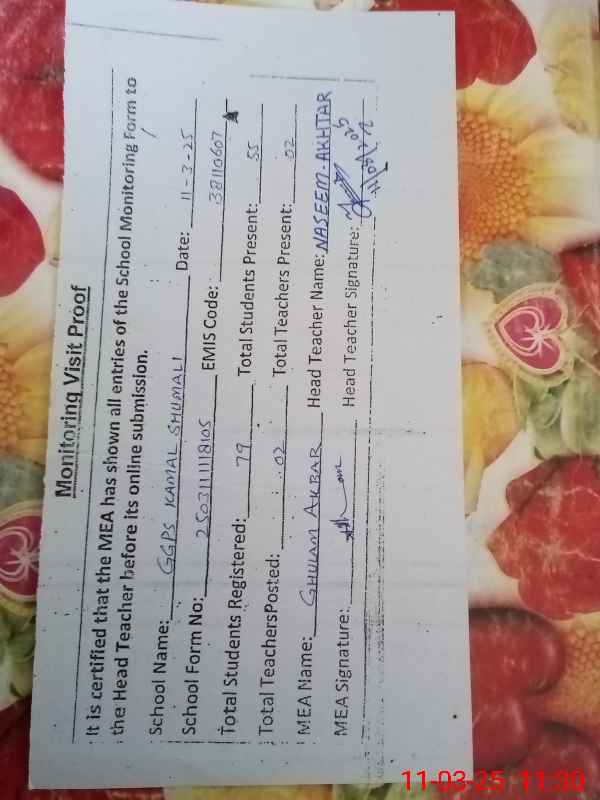 Monitoring Visit Proof
It is certified that the MEA has shown all entries of the School Monitoring Form to
the Head Teacher before its online submission.
School Name: GGPS KAMAL SHUMALI Date: 11-3-25
School Form No: 2503111118105 EMIS Code: 38110607
Total Students Registered: 79 Total Students Present: 55
Total TeachersPosted: 02 Total Teachers Present: 02
MEA Name: GHULAM AKBAR Head Teacher Name: NASEEM-AKHTAR
MEA Signature: Head Teacher Signature:
11-03-25 11:30